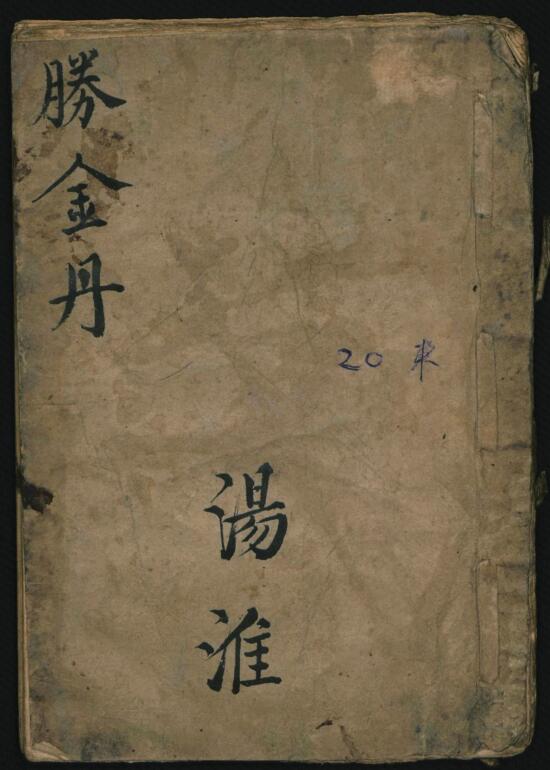 勝金丹
湯淮
20